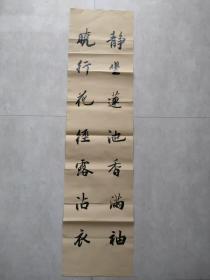 静坐莲池香满袖
晓行花径露沾衣